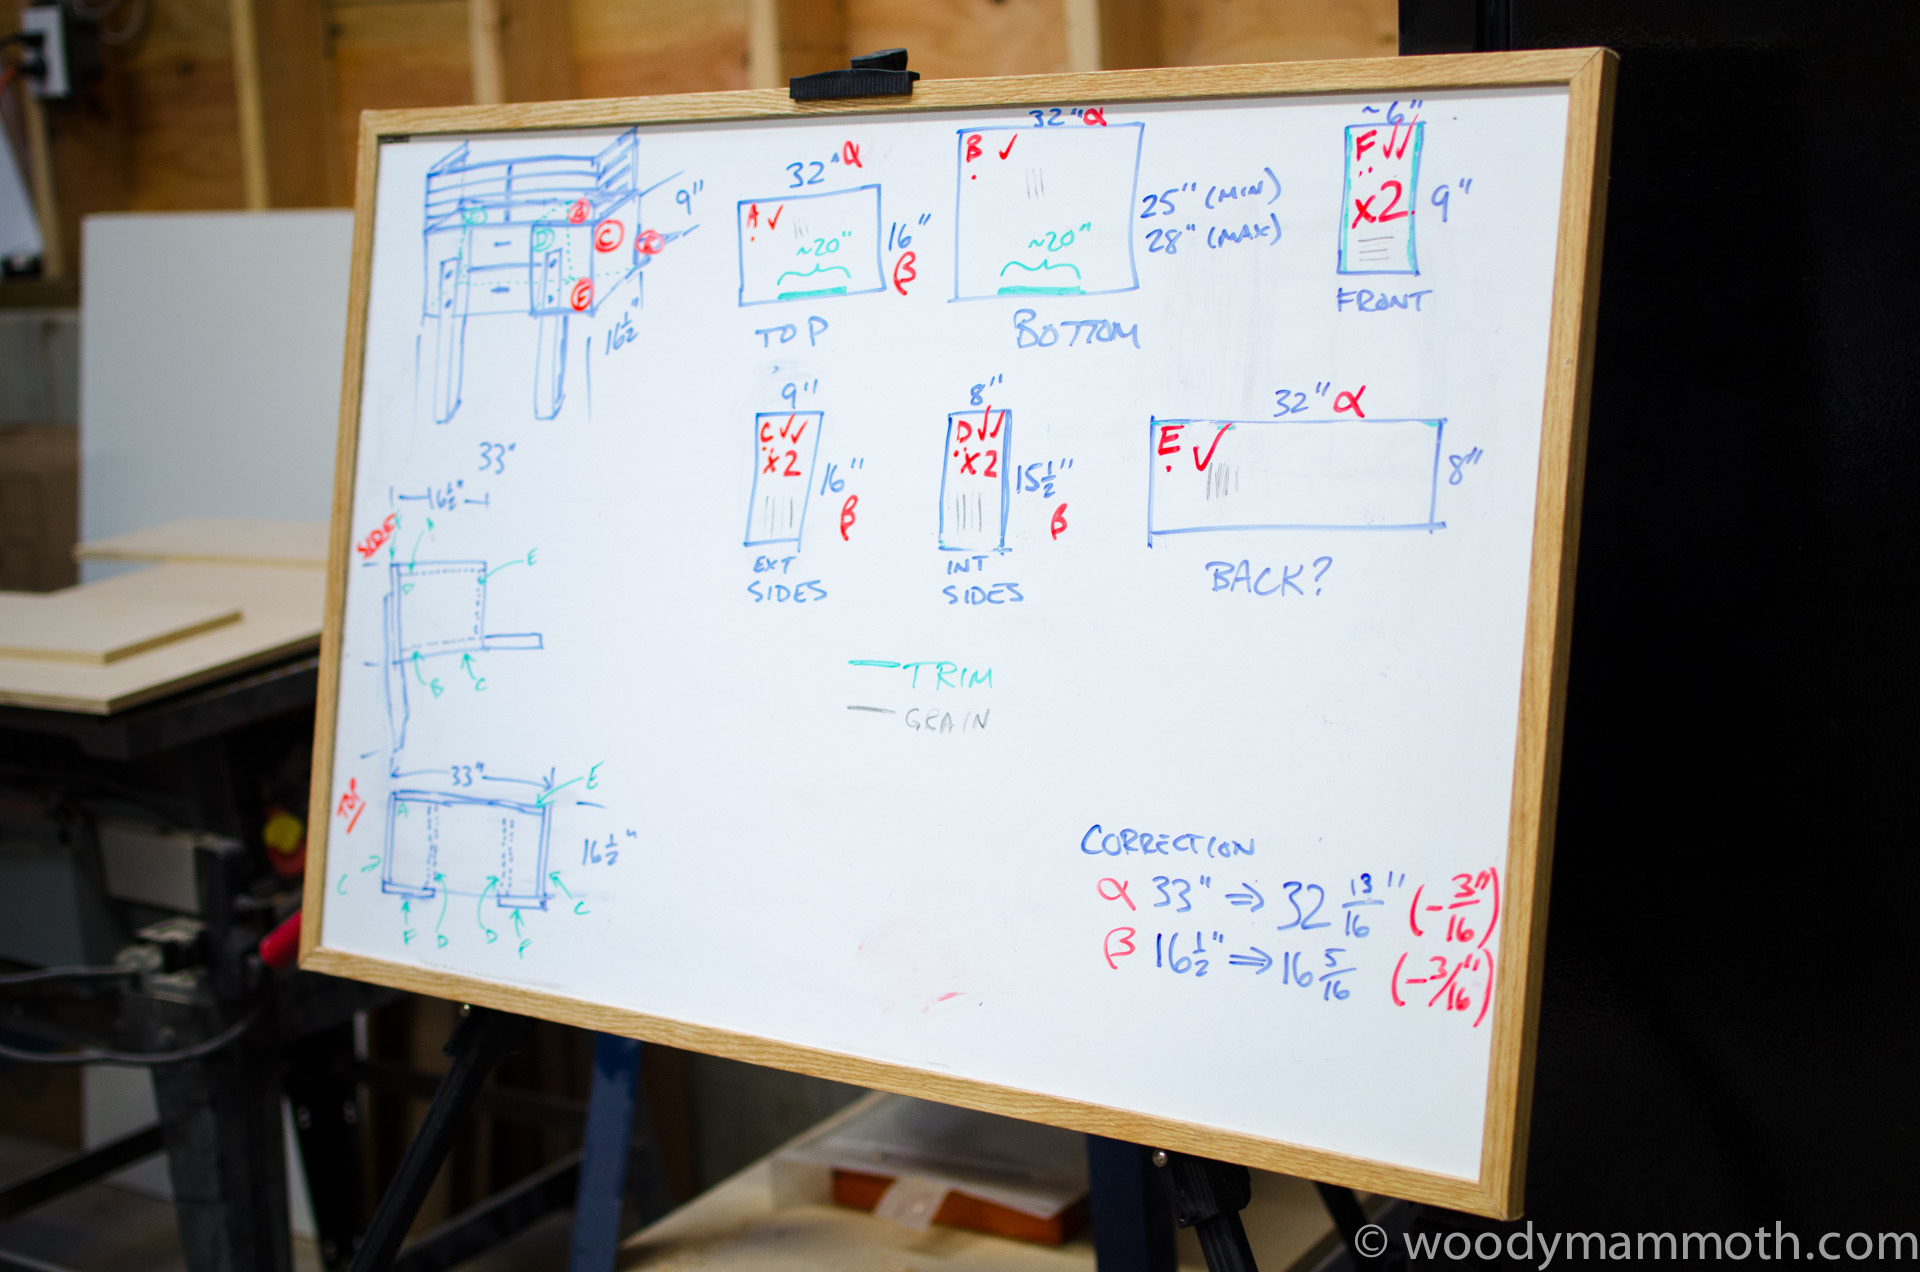 9"
16 1/2"
32" α
A ✓
~20"
16"
β
TOP
32" α
B ✓
~20"
25" (MIN)
28" (MAX)
BOTTOM
~6"
F ✓✓
x2
9"
FRONT
9"
C ✓✓
x2
16"
β
EXT
SIDES
8"
D ✓✓
x2
15 1/2"
β
INT
SIDES
32" α
E ✓
8"
BACK?
D
C
E
33"
16 1/2"
SIDE
E
B
C
TRIM
GRAIN
TOP
33"
E
A
16 1/2"
C
F
D
D
F
C
CORRECTION
α 33" ⇒ 32 13/16" (-3/16")
β 16 1/2" ⇒ 16 5/16 (-3/16")
© woodymammoth.com